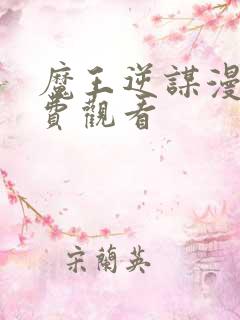 魔王逆謀漫
費觀看
宋蘭英